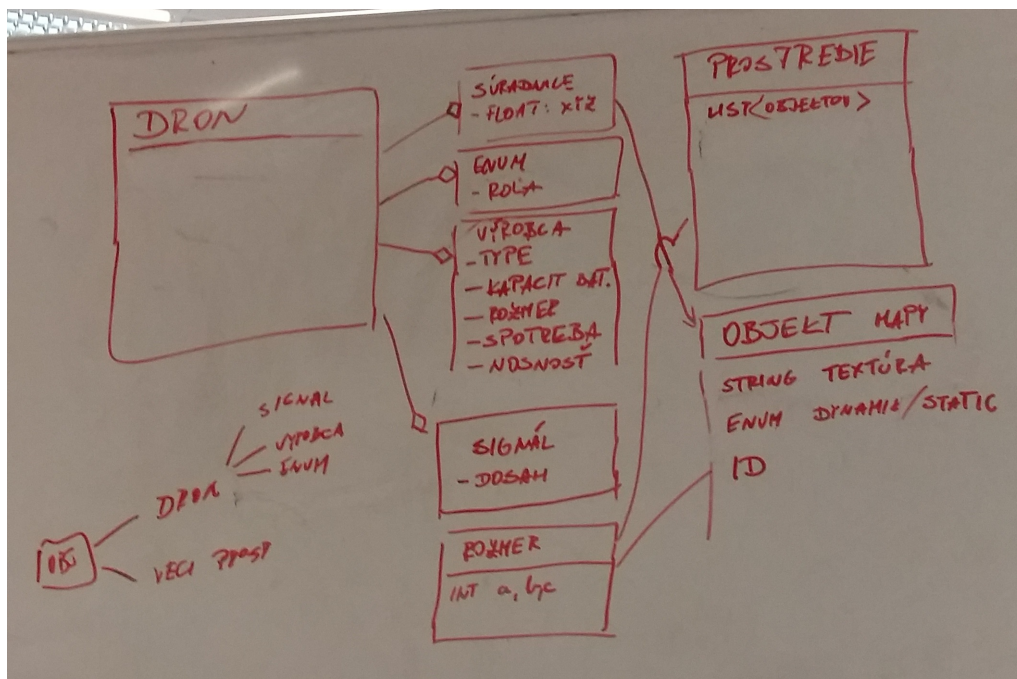 DRON
SÚRADNICE
- FLOAT: XYZ
ENUM
- ROLA
VÝROBCA
- TYPE
- KAPACIT BAT.
- ROZMER
- SPOTREBA
- NOSNOSŤ
SIGNÁL
- DOSAH
ROZMER
INT a, b, c
PROSTREDIE
LIST<OBJEKTOV>
OBJEKT MAPY
STRING TEXTÚRA
ENUM DYNAMIC/STATIC
ID
SIGNAL
VYROBCA
ENUM
DRON
OBJ
VECI PROST